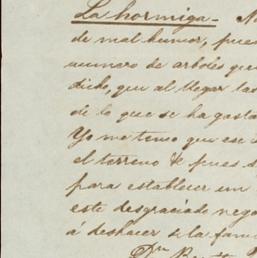 La hormiga.-
de mal humor, pues
numero de arboles que
dicho, que al llegar las
de lo que se ha gasta
Yo me temo que ese
el terreno & pues s
para establecer un
este desgraciado nego
á deshacer á la fami